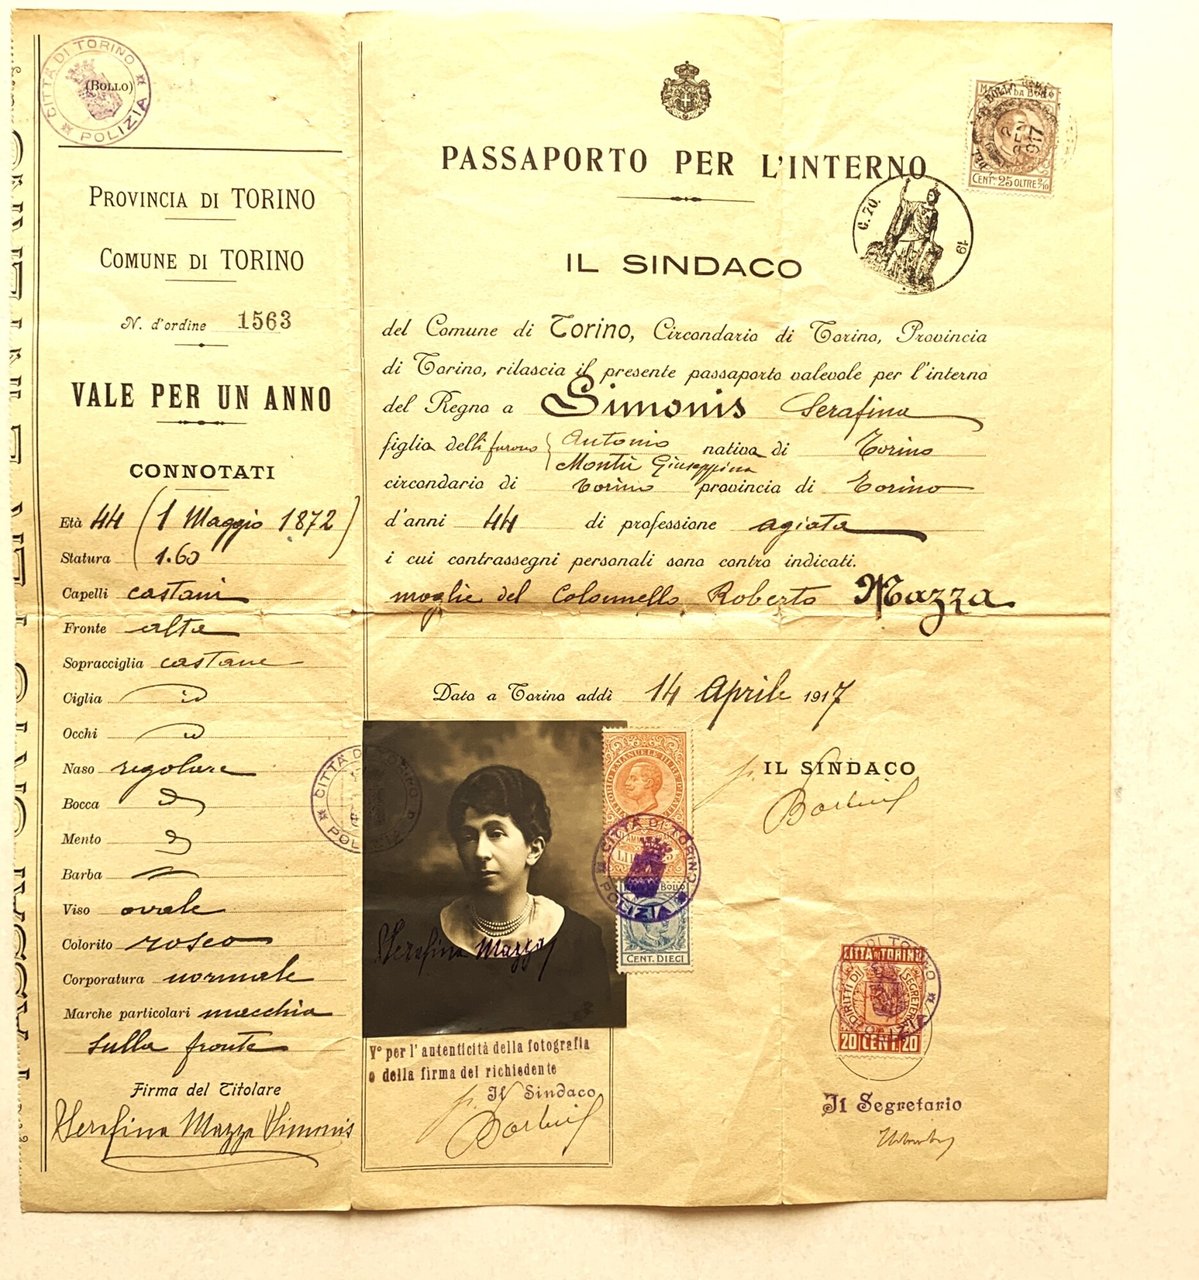 CITTÀ DI TORINO
(BOLLO)
POLIZIA
PROVINCIA DI TORINO
COMUNE DI TORINO
N. d'ordine 1563
VALE PER UN ANNO
CONNOTATI
Età 44 (1 Maggio 1872)
Statura 1.60
Capelli castani
Fronte alta
Sopracciglia castane
Ciglia id
Occhi id
Naso regolare
Bocca
Mento
Barba
Viso ovale
Colorito roseo
Corporatura normale
Marche particolari macchia
sulla fronte
Firma del Titolare
Serafina Mazza Simonis
PASSAPORTO PER L'INTERNO
MARCA DA BOLLO
2 GEN 917
CENT. 25 OLTRE 2/10
C. 20.
19
IL SINDACO
del Comune di Torino, Circondario di Torino, Provincia
di Torino, rilascia il presente passaporto valevole per l'interno
del Regno a Simonis Serafina
figlia delli furono Antonio nativa di Torino
Montù Giuseppina
circondario di Torino provincia di Torino
d'anni 44 di professione agiata
i cui contrassegni personali sono contro indicati.
moglie del Colonnello Roberto Mazza
Dato a Torino addì 14 Aprile 1917
IL SINDACO
CITTÀ DI TORINO
POLIZIA
Serafina Mazza
VITTORIO EMANUELE III RE D'ITALIA
CITTÀ DI TORINO
POLIZIA
MARCA DA BOLLO
CENT. DIECI
Vº per l'autenticità della fotografia
e della firma del richiedente
Il Sindaco
CITTÀ DI TORINO
DIRITTI DI SEGRETERIA
20 CENT. 20
Il Segretario